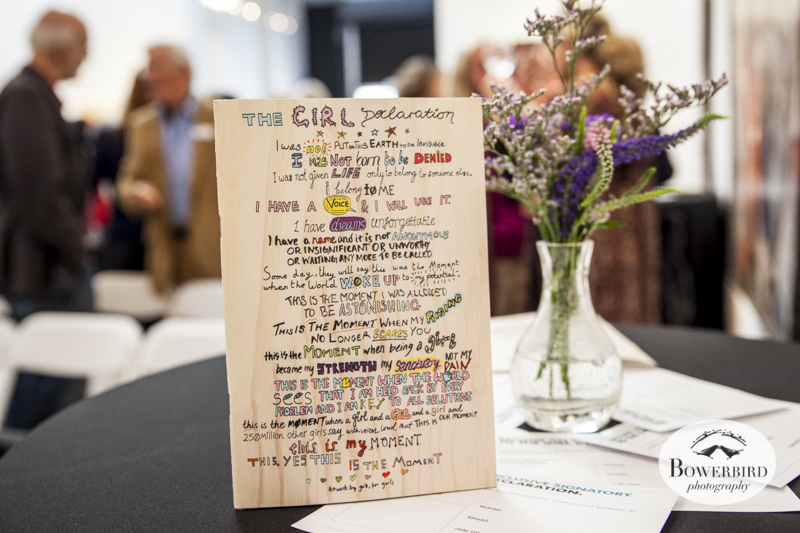 THE GIRL Declaration
I was not PUT ON THIS EARTH to be invisible.
I WAS NOT born to be DENIED
I was not given LIFE only to belong to someone else.
i belong to ME
I HAVE A VOICE & I WILL USE IT.
I have dreams unforgettable
I have a name and it is not ANONYMOUS
OR INSIGNIFICANT OR UNWORTHY
OR WAITING ANY MORE TO BE CALLED
Some day, they will say this was the Moment
when the World WOKE UP to my potential
THIS IS THE MOMENT I WAS ALLOWED
TO BE ASTONISHING.
THIS IS THE MOMENT WHEN MY RISING
NO LONGER SCARES YOU
this is the MOMENT when being a girl
became my STRENGTH my Sanctuary NOT MY PAIN
THIS IS THE MOMENT WHEN THE WORLD
SEES THAT I AM HELD BACK BY EVERY
PROBLEM AND I AM KEY TO ALL SOLUTIONS
this is the MOMENT when a girl and a GIRL and a girl and
250 million other girls say with voices loud that THIS IS OUR MOMENT
this is my MOMENT
THIS, YES THIS IS THE MOMENT
Artwork by girls, for girls
CLUSIVE SIGNATORY
CLARATION.
Name
Email
Join us
BOWERBIRD
photography